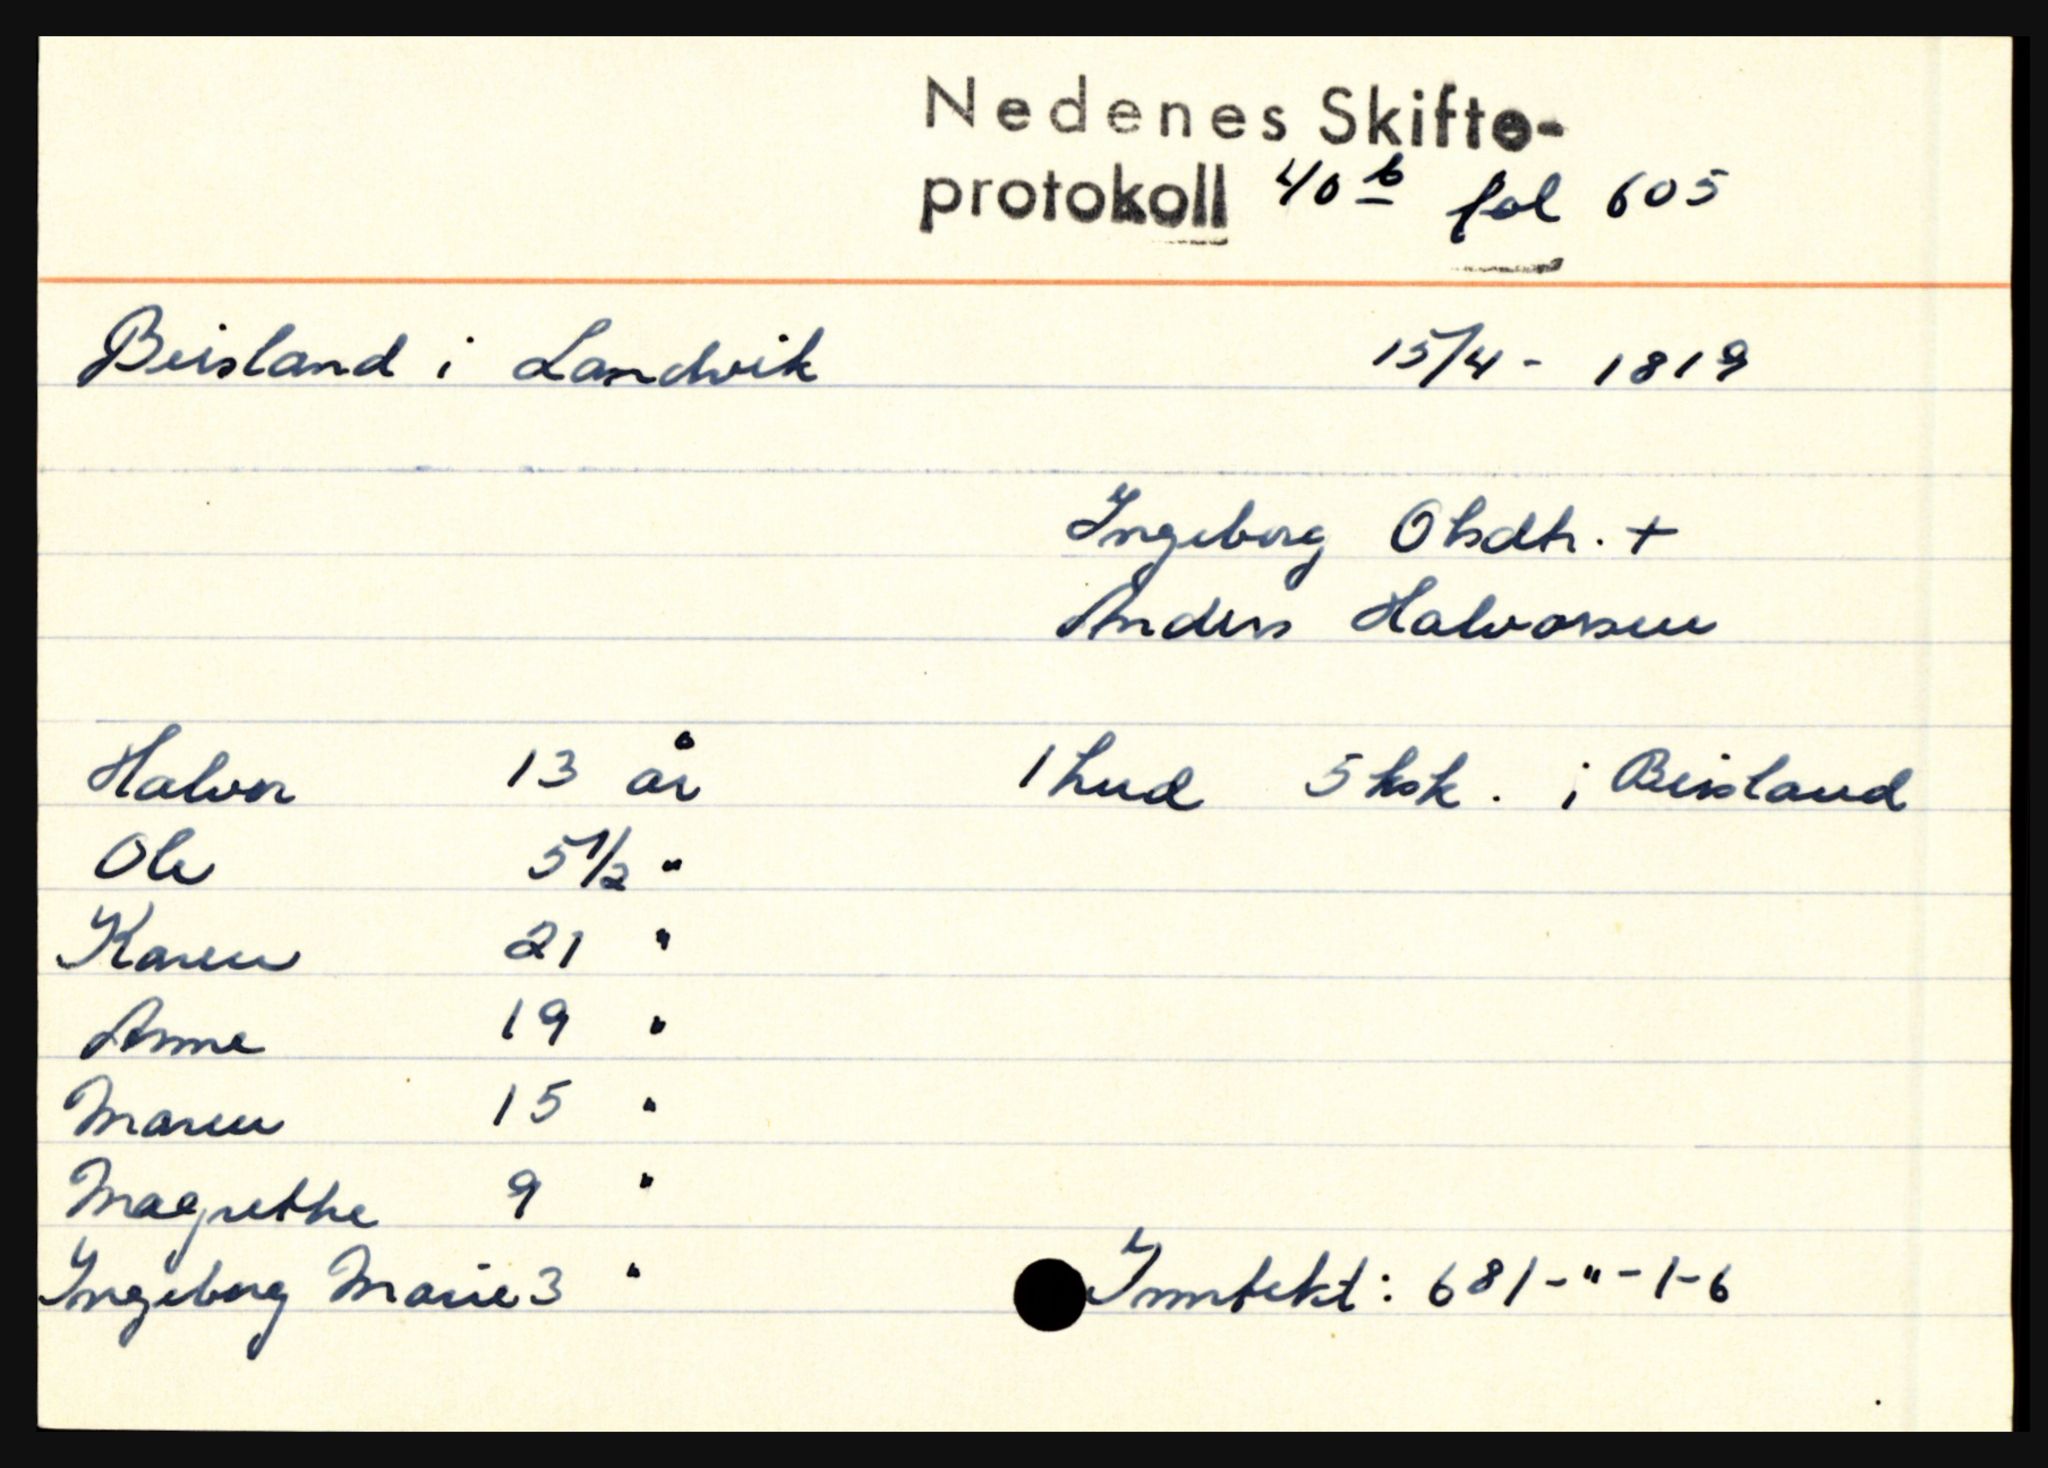 Nedenes Skifte-
protokoll 40 b fol 605
Beisland i Landvik 15/4 - 1819
Ingeborg Olsdtr. +
Anders Halvorsen
Halvor 13 år 1 hud 5 ksk. i Beisland
Ole 5 1/2 "
Karen 21 "
Anne 19 "
Maren 15 "
Magrethe 9 "
Ingeborg Marie 3 " Inntekt: 681-"-1-6